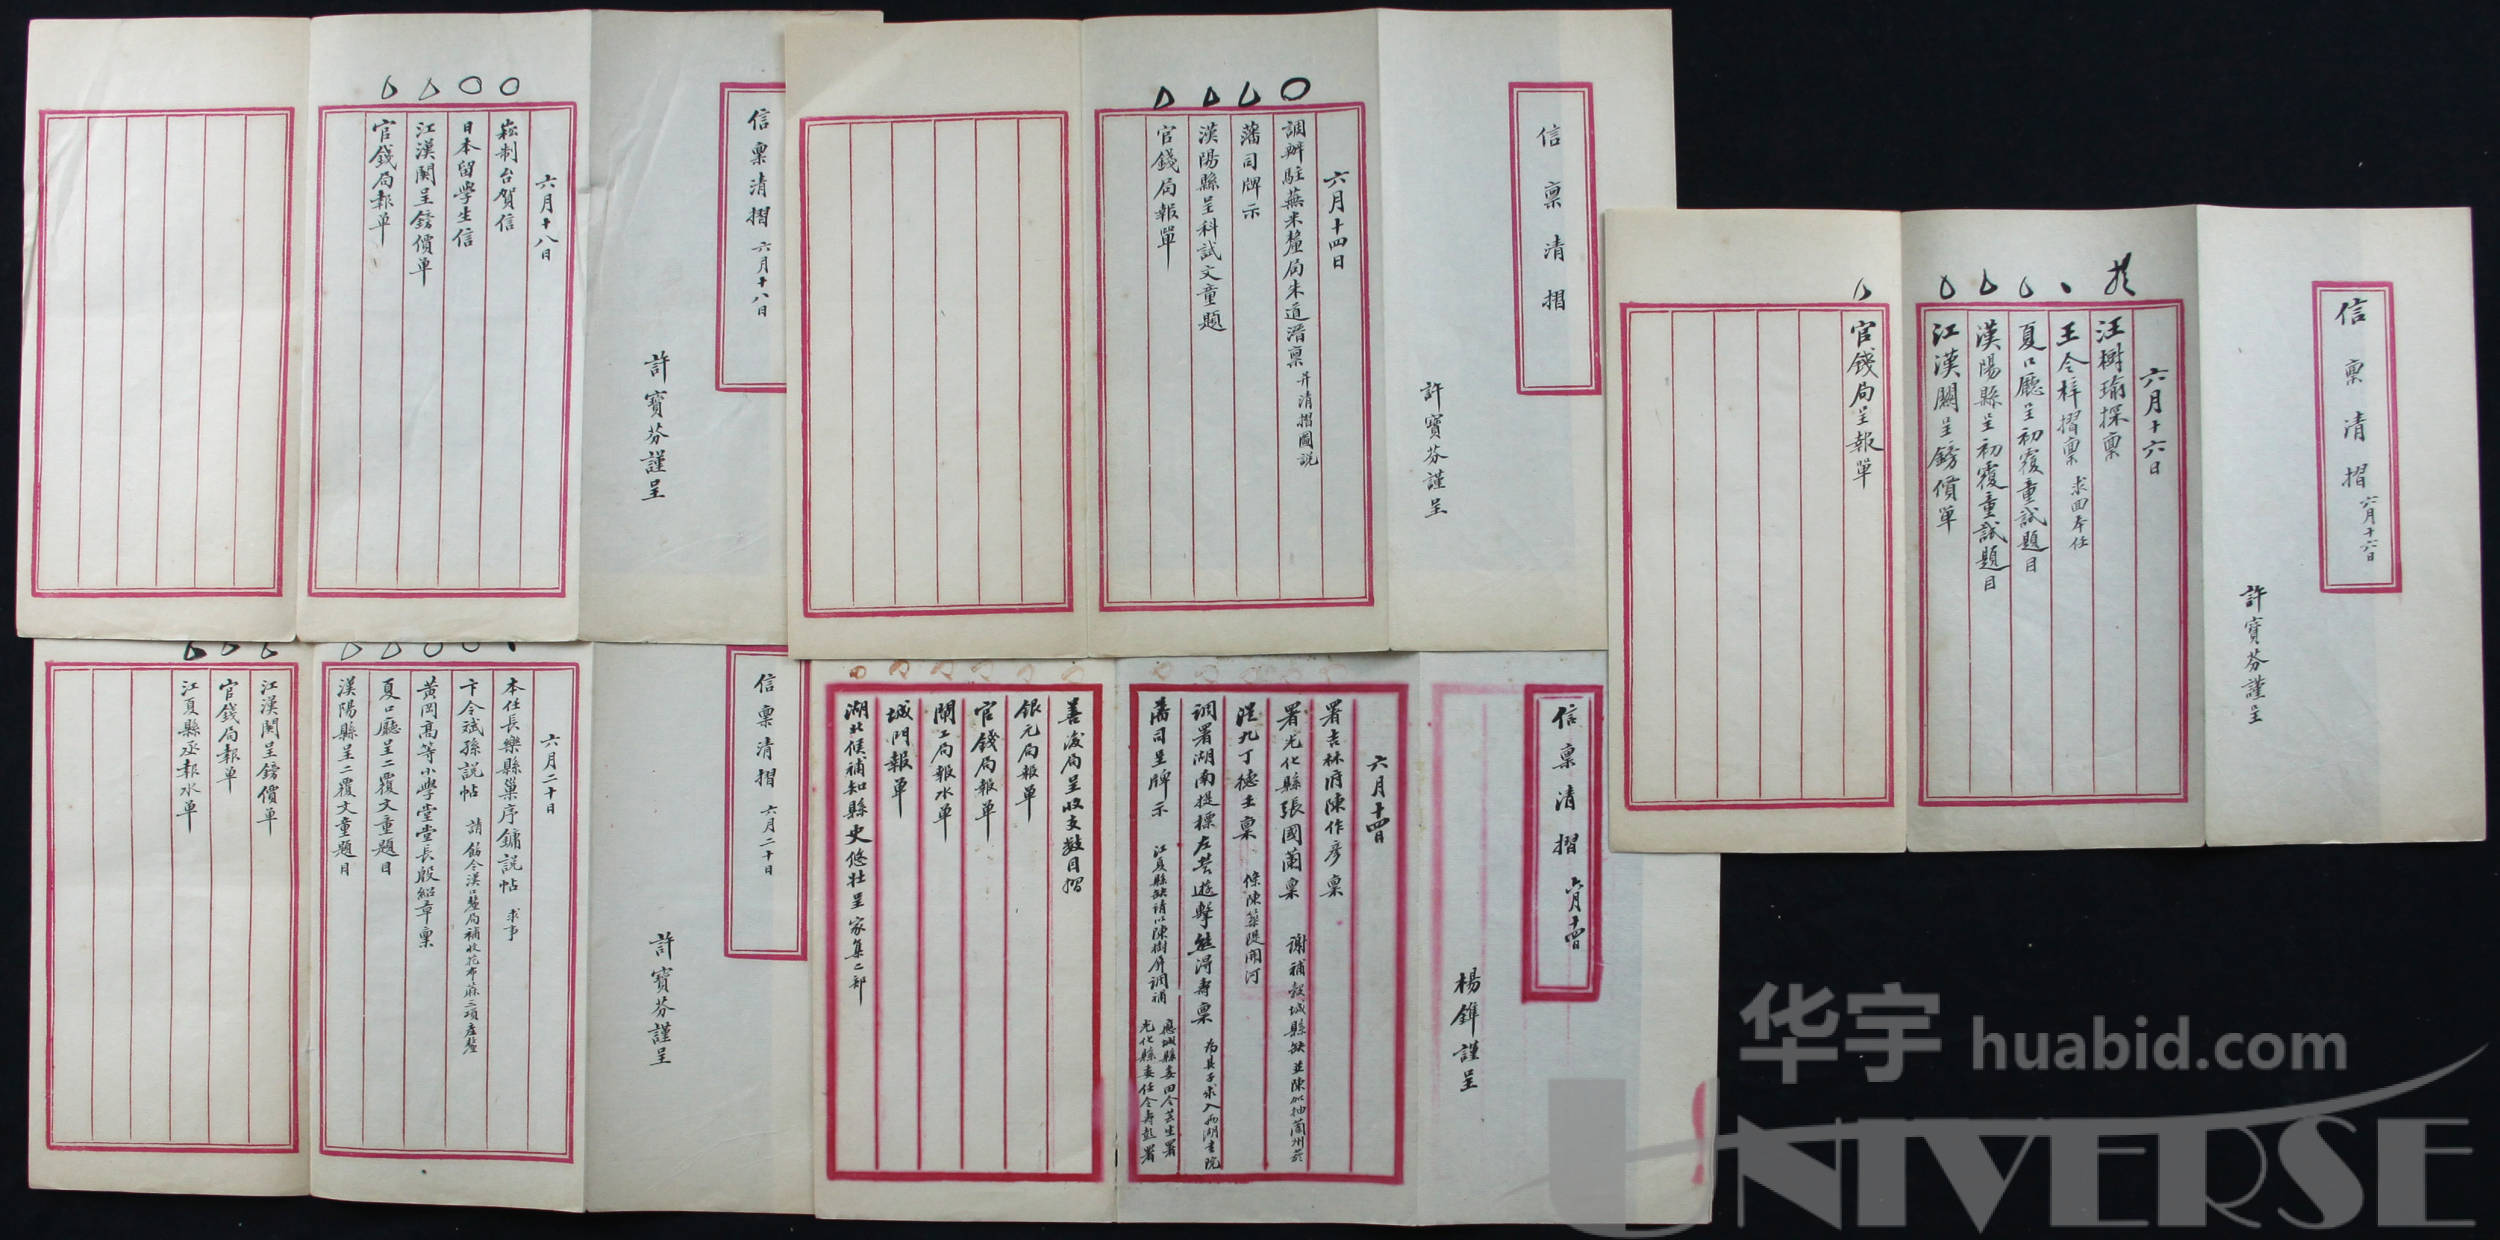 信稟清摺 六月十八日
許寶芬謹呈
六月十八日
崧制台賀信
日本留學生信
江漢關呈鎊價單
官錢局報單
信稟清摺
許寶芬謹呈
六月十四日
調辦駐蕪米釐局朱道溍稟 并清摺圖說
藩司牌示
漢陽縣呈科試文童題
官錢局報單
信稟清摺 六月十六日
許寶芬謹呈
六月十六日
汪樹瑜探稟
王令梓摺稟 求回本任
夏口廳呈初覆童試題目
漢陽縣呈初覆童試題目
江漢關呈鎊價單
官錢局呈報單
信稟清摺 六月二十日
許寶芬謹呈
六月二十日
本任長樂縣巢序鏞說帖 求事
卞令斌孫說帖 請飭令漢口釐局補收花布蔴三項產釐
黃岡高等小學堂堂長殷紹章稟
夏口廳呈二覆文童題目
漢陽縣呈二覆文童題目
江漢關呈鎊價單
官錢局報單
江夏縣丞報水單
信稟清摺 六月十四日
楊鋒謹呈
六月十四日
署吉林府陳作彥稟
署光化縣張國蘭稟 謝補穀城縣缺並陳加抽蘭州菸
丁德主稟 條陳築隄開河
調署湖南提標左營遊擊熊得壽稟 為其子求入兩湖書院
藩司呈牌示 江夏縣缺請以陳樹屏調補 應城縣委田令芸生署 光化縣委任令壽彭署
善後局呈收支數目摺
銀元局報單
官錢局報單
關工局報水單
城門報單
湖北候補知縣史悠壯呈家集二部
华宇 huabid.com
UNIVERSE